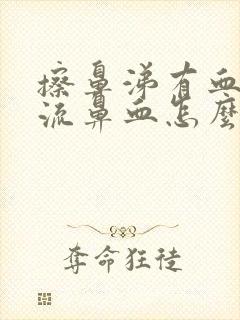 擦鼻涕有血
流鼻血怎麼
奪命狂徒